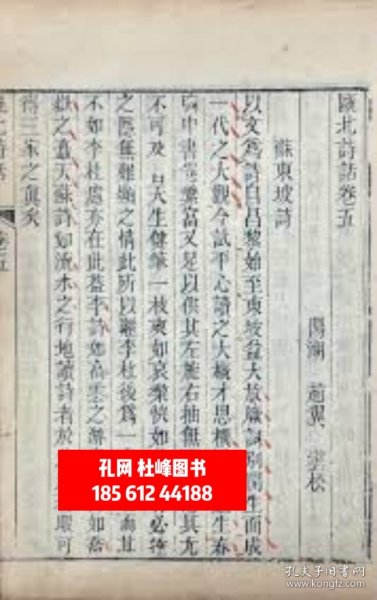 甌北詩話卷五
陽湖 趙翼 雲松
蘇東坡詩
以文爲詩自昌黎始至東坡益大放厥詞別開生面成
一代之大觀今試平心讀之大概才思橫 生春
胸中書卷繁富又足以供其左旋右抽無 其尤
不可及者天生健筆一枝爽如哀梨快如 必達
之隱無難顯之情此所以繼李杜後爲一 而其
不如李杜處亦在此蓋李詩如高雲之游 如喬
嶽之矗天蘇詩如流水之行地讀詩者於 眼可
得三家之真矣
甌北詩話 卷五
孔网 杜峰图书
185 612 44188
孔夫子旧书网